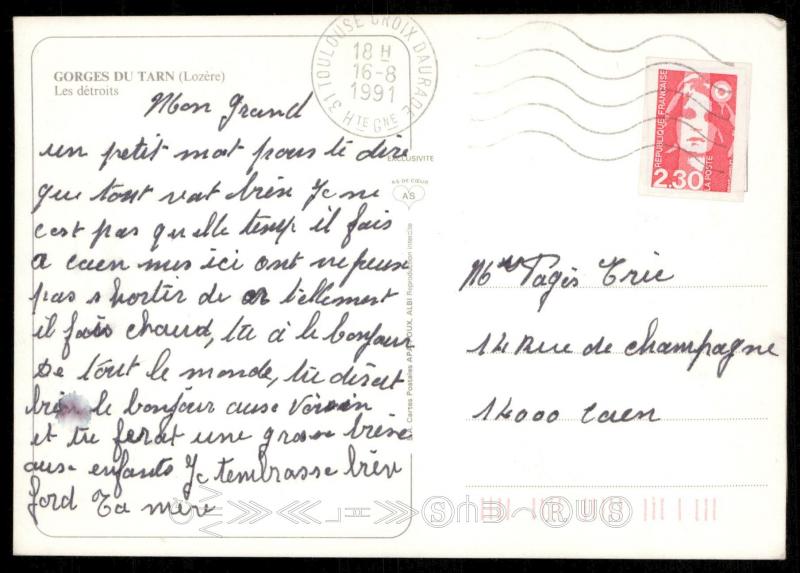 GORGES DU TARN (Lozère)
Les détroits
Mon Grand
un petit mot pous te dire
que tout vat bien Je ne
c'est pas quelle temp il fais
a caen mes ici ont ne peux
pas shortir de tellement
il fais chaud, tu a le bonjour
De tout le monde, tu diset
bien le bonjour ause Voisin
et tu ferat une grose bise
ause enfants Je tembrasse bien
ford Ta mère
31 TOULOUSE CROIX DAURADE
18 H
16-8
1991
HTE GNE
EXCLUSIVITE
AS DE CŒUR
AS
S.A. Cartes Postales APA-POUX, ALBI Reproduction interdite
REPUBLIQUE FRANÇAISE
2,30
LA POSTE
Mr Pagès Eric
14 Rue de champagne
14000 Caen